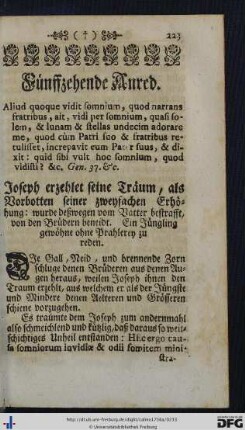 ( † ) 223
Fünffzehende Anred.
Aliud quoque vidit somnium, quod narrans
fratribus, ait, vidi per somnium, quasi so-
lem, & lunam & stellas undecim adorare
me, quod cùm Patri suo & fratribus re-
tulisset, increpavit eum Pater suus, & di-
xit: quid sibi vult hoc somnium, quod
vidisti? &c. Gen. 37. &c.
Joseph erzehlet seine Träum, als
Vorbotten seiner zweyfachen Erhö-
hung: wurde deßwegen vom Vatter bestrafft,
von den Brüdern beneidt. Ein Jüngling
gewöhne ohne Prahlerey zu
reden.
DIe Gall, Neid, und brennende Zorn
schluge denen Brüderen aus denen Au-
gen heraus, weilen Joseph ihnen den
Traum erzehlt, aus welchem er als der Jüngste
und Mindere denen Aelteren und Grösseren
schiene vorzugehen.
Es traumte dem Joseph zum andernmahl
also schmeichlend und kützlig, daß daraus so weit-
schichtiges Unheil enstanden: Hæc ergo cau-
sa somniorum invidiæ & odii fomitem mini-
stra-
http://digital.ub.uni-freiburg.de
© Universitätsbibliothek Freiburg